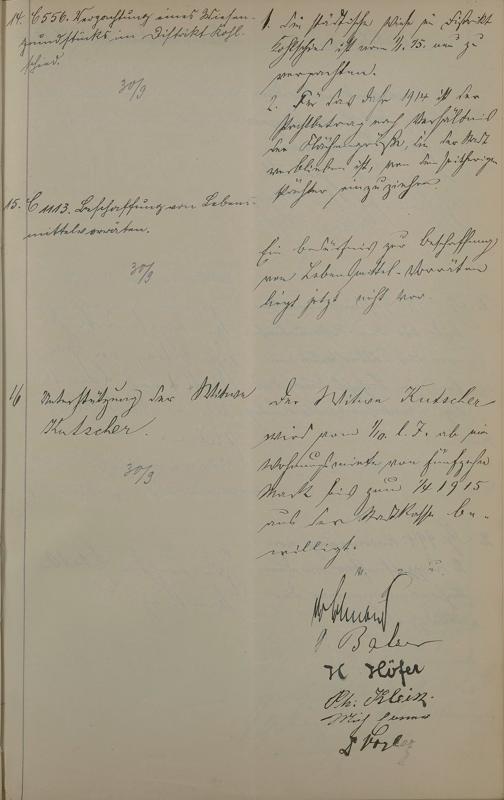 14. C 556. Verpachtung eines Wiesen-
grundstücks im Distrikt Kohl-
schied.
30/9
1. Die städtische Wiese im Distrikt
Kohlschied ist vom 1/1. 15. neu zu
verpachten.
2. Für das Jahr 1914 ist der
Pachtbetrag nach Verhältnis
der Flächengröße, die der Stadt
verblieben ist, von dem seitherigen
Pächter einzuziehen.
15. C 1113. Beschaffung von Lebens-
mittelvorräten.
30/9
Ein Bedürfnis zur Beschaffung
von Lebensmittel-Vorräten
liegt jetzt nicht vor.
16 Unterstützung der Witwe
Kutscher.
30/9
Der Witwe Kutscher
wird vom 1/10. l. J. ab eine
Wohnungsmiete von fünfzehn
Mark bis zum 1/4 1915
aus der Stadtkasse be-
willigt.
v. g. u.
Balser
H Höfer
Ph: Klein.